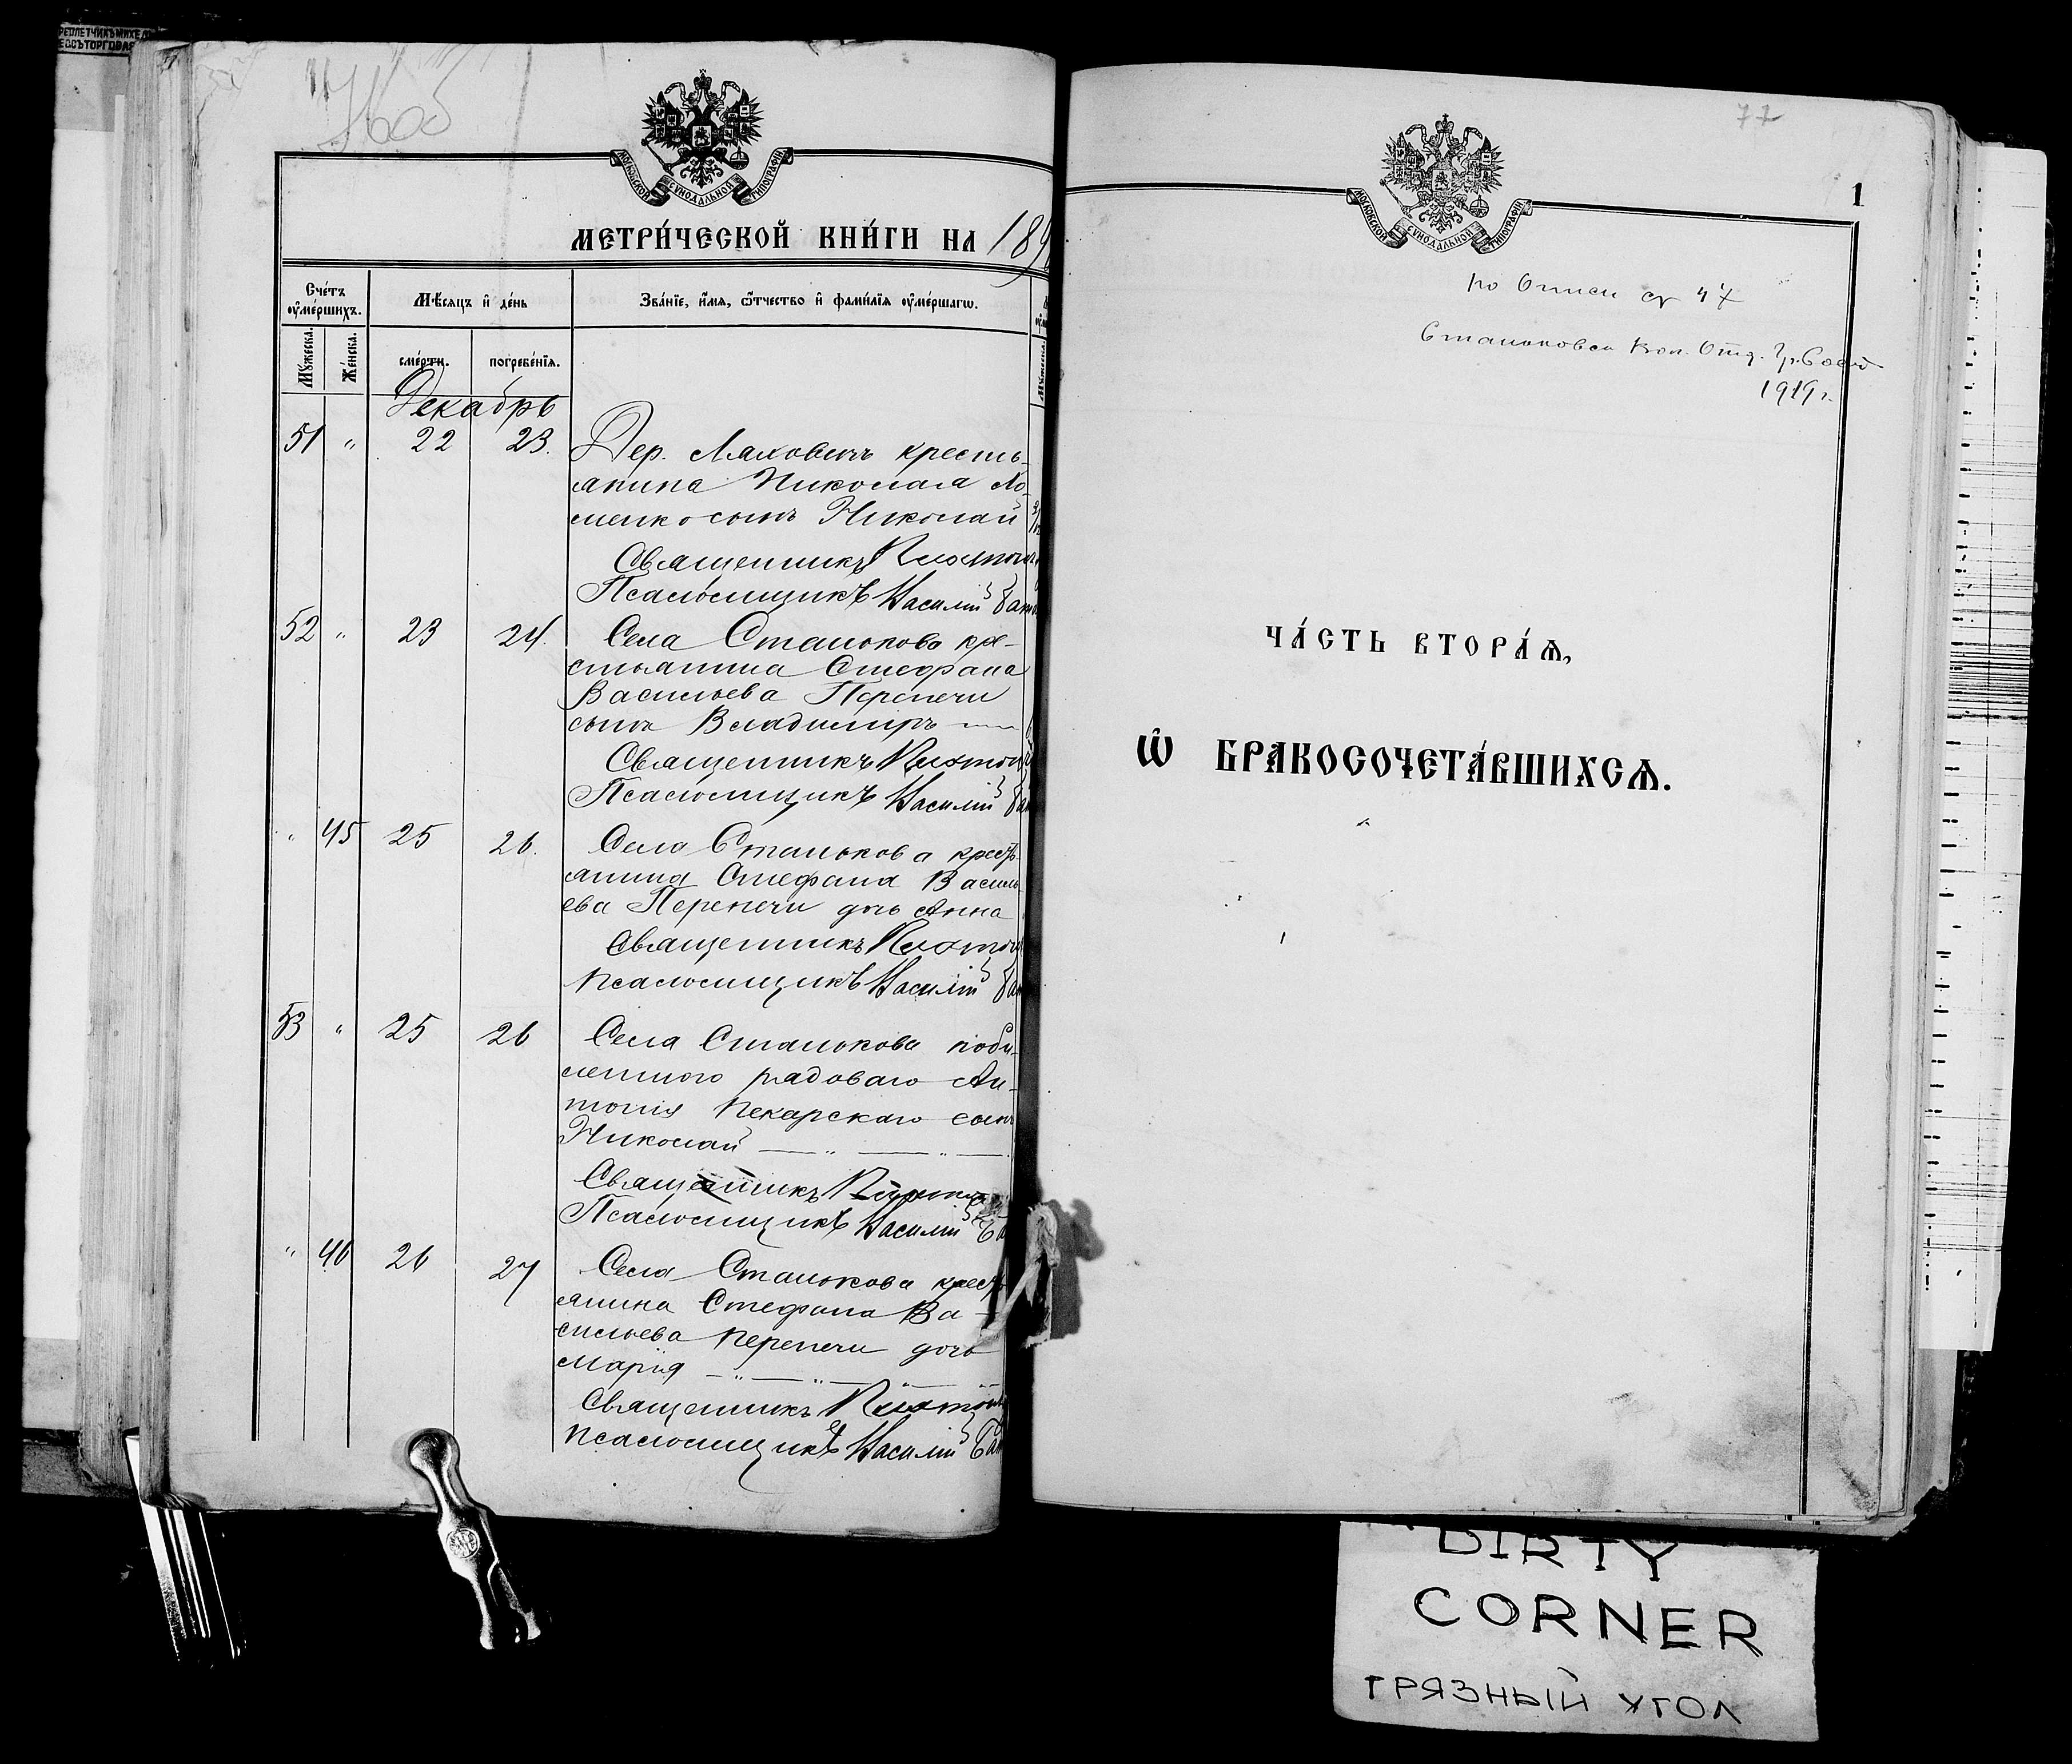 МОСКОВСКОЙ СѴНОДАЛЬНОЙ ТИПОГРАФІИ
МЕТРИ́ЧЕСКОЙ КНИ́ГИ НА 189
Сче́тъ ᲂу҆ме́ршихъ.
Мѣ́сяцъ и҆ де́нь
Зва́нїе, и҆́мя, ѻ҆́тчество и҆ фами́лїя ᲂу҆ме́ршагѡ.
Мꙋ́жеска.
Же́нска.
сме́рти.
погребе́нїя.
Декабрь
51 " 22 23. Дер. Ляховичъ кресть-
янина Николая Ло-
сынъ Николай
Священникъ
Псаломщикъ Василій
52 " 23 24. Села Станькова кре-
стьянина Стефана
Васильева Перепечи
сынъ Владиміръ
Священникъ
Псаломщикъ Василій
" 45 25 26. Села Станькова кресть-
янина Стефана Василь-
ева Перепечи дочь Анна
Священникъ
Псаломщикъ Василій
53 " 25 26 Села Станькова
рядоваго Ан-
тонія Пекарскаго сынъ
Николай
Священникъ
Псаломщикъ Василій
" 46 26 27 Села Станькова кресть-
янина Стефана Ва-
сильева Перепечи дочь
Марія
Священникъ
Псаломщикъ Василій
77
МОСКОВСКОЙ СѴНОДАЛЬНОЙ ТИПОГРАФІИ
1
по Описи 47
Станьковск Вол. Отд.
1919 г.
ЧА́СТЬ ВТОРА́Ѧ,
Ѡ҆ БРАКОСОЧЕТА́ВШИХСѦ.
DIRTY
CORNER
ГРЯЗНЫЙ УГОЛ